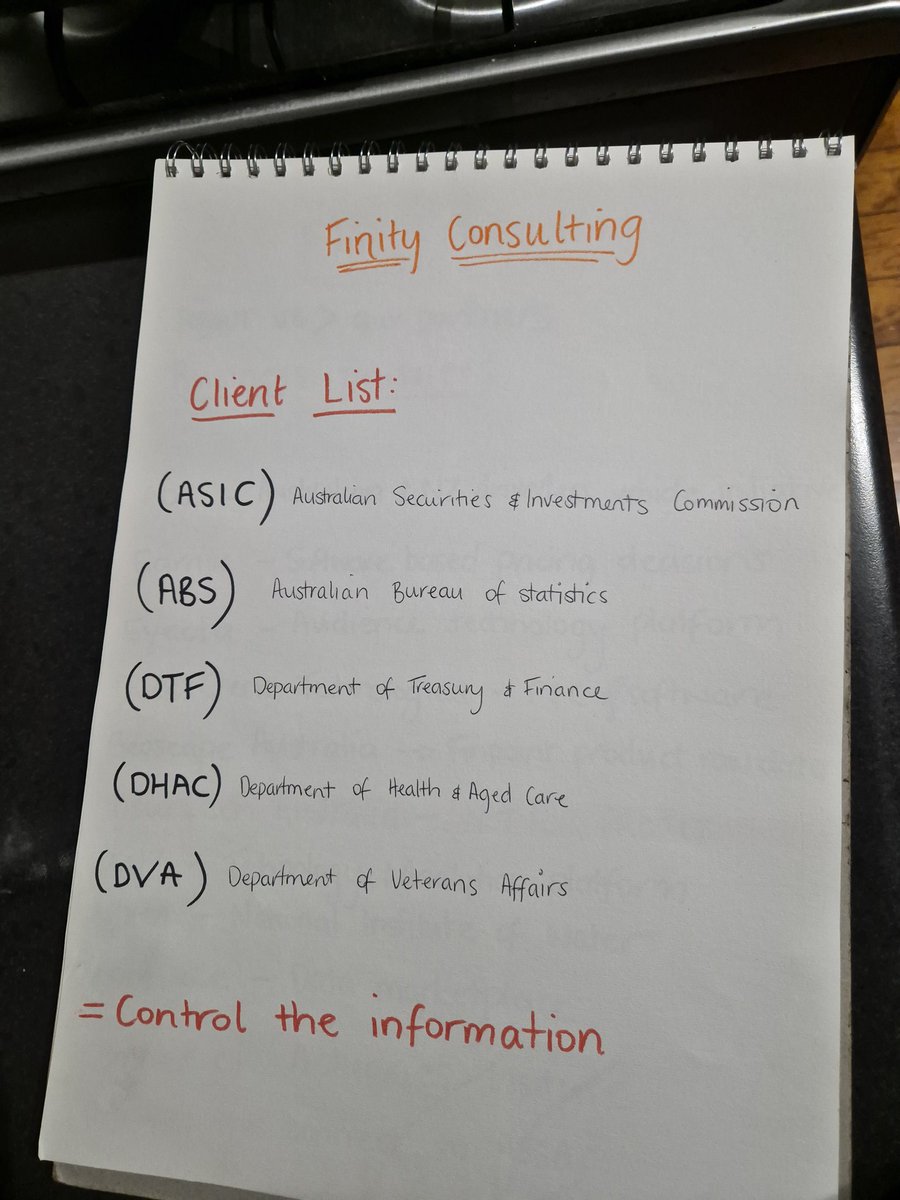 Finity Consulting
Client List:
(ASIC) Australian Securities & Investments Commission
(ABS) Australian Bureau of statistics
(DTF) Department of Treasury & Finance
(DHAC) Department of Health & Aged Care
(DVA) Department of Veterans Affairs
= Control the information